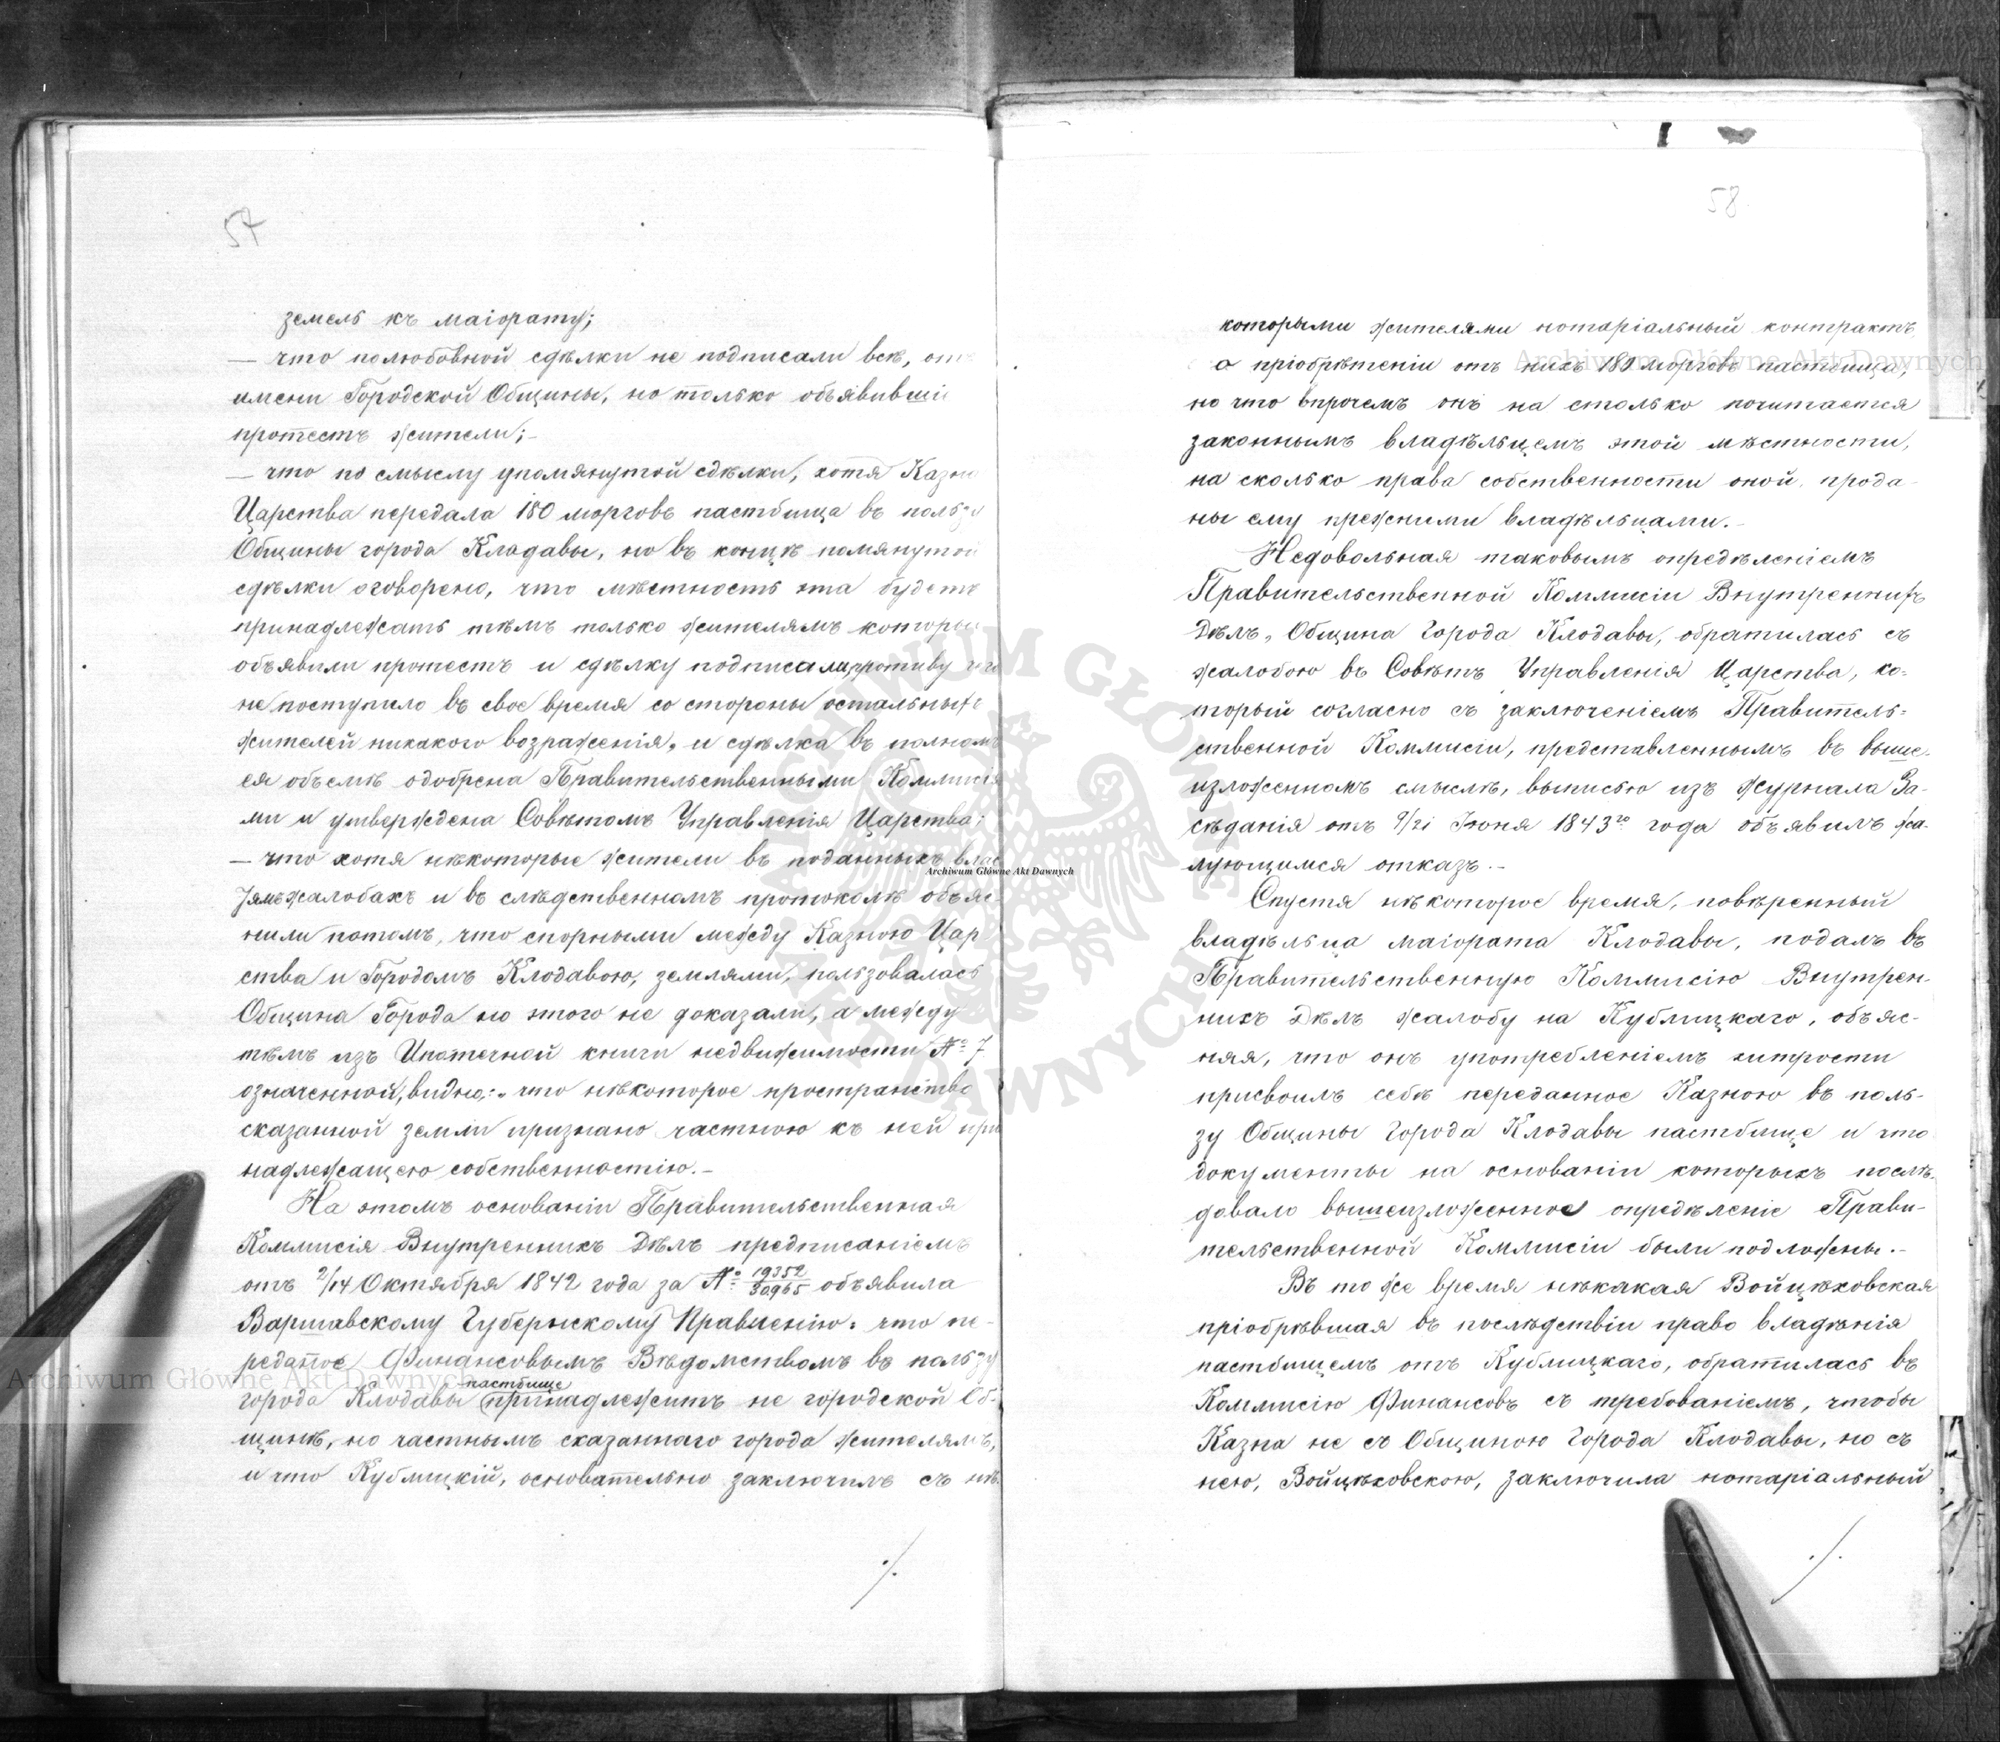 57
земель къ маіорату;
— что полюбовной сдѣлки не подписали всѣ, отъ
имени Городской Общины, но только объявившіе
протестъ жители;–
— что по смыслу упомянутой сдѣлки, хотя Казна
Царства передала 180 морговъ пастбища въ пользу
Общины города Кладавы, но въ концѣ помянутой
сдѣлки оговорено, что мѣстность эта будетъ
принадлежать тѣмъ только жителямъ которые
объявили протестъ и сдѣлку подписали, противу чего
не поступило въ свое время со стороны остальныхъ
жителей никакого возраженія, и сдѣлка въ полномъ
ея объемѣ одобрена Правительственными Коммисія
ми и утверждена Совѣтомъ Управленія Царства;
— что хотя нѣкоторые жители въ поданныхъ влас
тямъ жалобахъ и въ слѣдственномъ протоколѣ объяс-
нили потомъ, что спорными между Казною Цар
ства и Городомъ Клодавою, землями, пользовалась
Община Города но этого не доказали, а между
тѣмъ изъ Ипотечной книги недвижимости № 7
означенной, видно: что нѣкоторое пространство
сказанной земли признано частною къ ней при
надлежащею собственностію.–
На этомъ основаніи Правительственная
Коммисія Внутреннихъ Дѣлъ предписаніемъ
отъ 2/14 Октября 1842 года за № 19352/30965 объявила
Варшавскому Губернскому Правленію: что пе-
реданое Финансовымъ Вѣдомствомъ въ пользу
пастбище
города Клодавы принадлежитъ не городской Об-
щинѣ, но частнымъ сказаннаго города жителямъ,
и что Кублицкій, основательно заключилъ съ нѣ-
./.
58
которыми жителями нотаріальный контрактъ
о пріобрѣтеніи отъ нихъ 180 морговъ пастбища,
но что впрочемъ онъ на столько почитается
законнымъ владѣльцемъ этой мѣстности,
на сколько права собственности оной, прода-
ны ему прежними владѣльцами.–
Недовольная таковымъ опредѣленіемъ
Правительственной Коммисіи Внутреннихъ
Дѣлъ, Община Города Клодавы, обратилась съ
жалобою въ Совѣтъ Управленія Царства, ко-
торый согласно съ заключеніемъ Правитель=
ственной Коммисіи, представленнымъ въ выше-
изложенномъ смыслѣ, выписью изъ Журнала За-
сѣданія отъ 9/21 Іюня 1843го года объявилъ жа-
лующимся отказъ.–
Спустя нѣкоторое время, повѣренный
владѣльца маіората Клодавы, подалъ въ
Правительственную Коммисію Внутрен-
нихъ Дѣлъ жалобу на Кублицкаго, объяс-
няя, что онъ употребленіемъ хитрости
присвоилъ себѣ переданное Казною въ поль-
зу Общины Города Клодавы пастбище и что
документы на основаніи которыхъ послѣ-
довало вышеизложенное опредѣленіе Прави-
тельственной Коммисіи были подложны.–
Въ то же время нѣкакая Войцѣховская
пріобрѣвшая въ послѣдствіи право владѣнія
пастбищемъ отъ Кублицкаго, обратилась въ
Коммисію Финансовъ съ требованіемъ, чтобы
Казна не съ Общиною Города Клодавы, но съ
нею, Войцѣховскою, заключила нотаріальный
./.
Archiwum Główne Akt Dawnych
Archiwum Główne Akt Dawnych
Archiwum Główne Akt Dawnych
ARCHIWUM GŁÓWNE AKT DAWNYCH